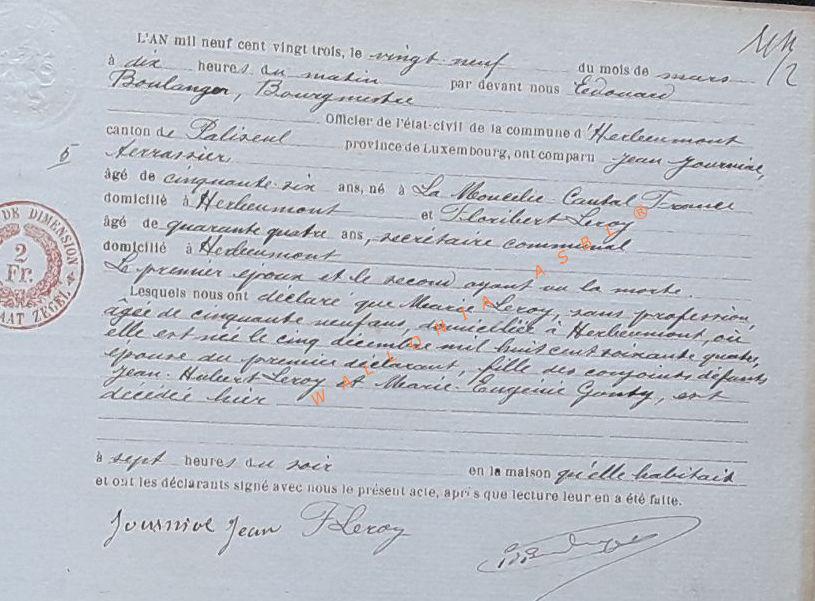 L'AN mil neuf cent vingt trois, le vingt neuf du mois de mars
à dix heures du matin par devant nous Edouard
Boulanger, Bourgmestre
Officier de l'état-civil de la commune d'Herbeumont
5
canton de Paliseul province de Luxembourg, ont comparu Jean Journiac,
terrassier,
âgé de cinquante-six ans, né à La Cantal France
domicilié à Herbeumont et Floribert Leroy
âgé de quarante quatre ans, secrétaire communal
domicilié à Herbeumont
Le premier époux et le second ayant vu la morte.
Lesquels nous ont déclaré que Marie Leroy, sans profession,
âgée de cinquante neuf ans, domiciliée à Herbeumont, où
elle est née le cinq décembre mil huit cent soixante quatre,
épouse du premier déclarant, fille des conjoints défunts
Jean-Hubert Leroy et Marie-Eugénie Gonty, est
décédée hier
à sept heures du soir en la maison qu'elle habitait
et ont les déclarants signé avec nous le présent acte, après que lecture leur en a été faite.
Jean FLeroy
DE DIMENSION
2
Fr.
AAT ZEGEL
WALLONIA ASBL ®